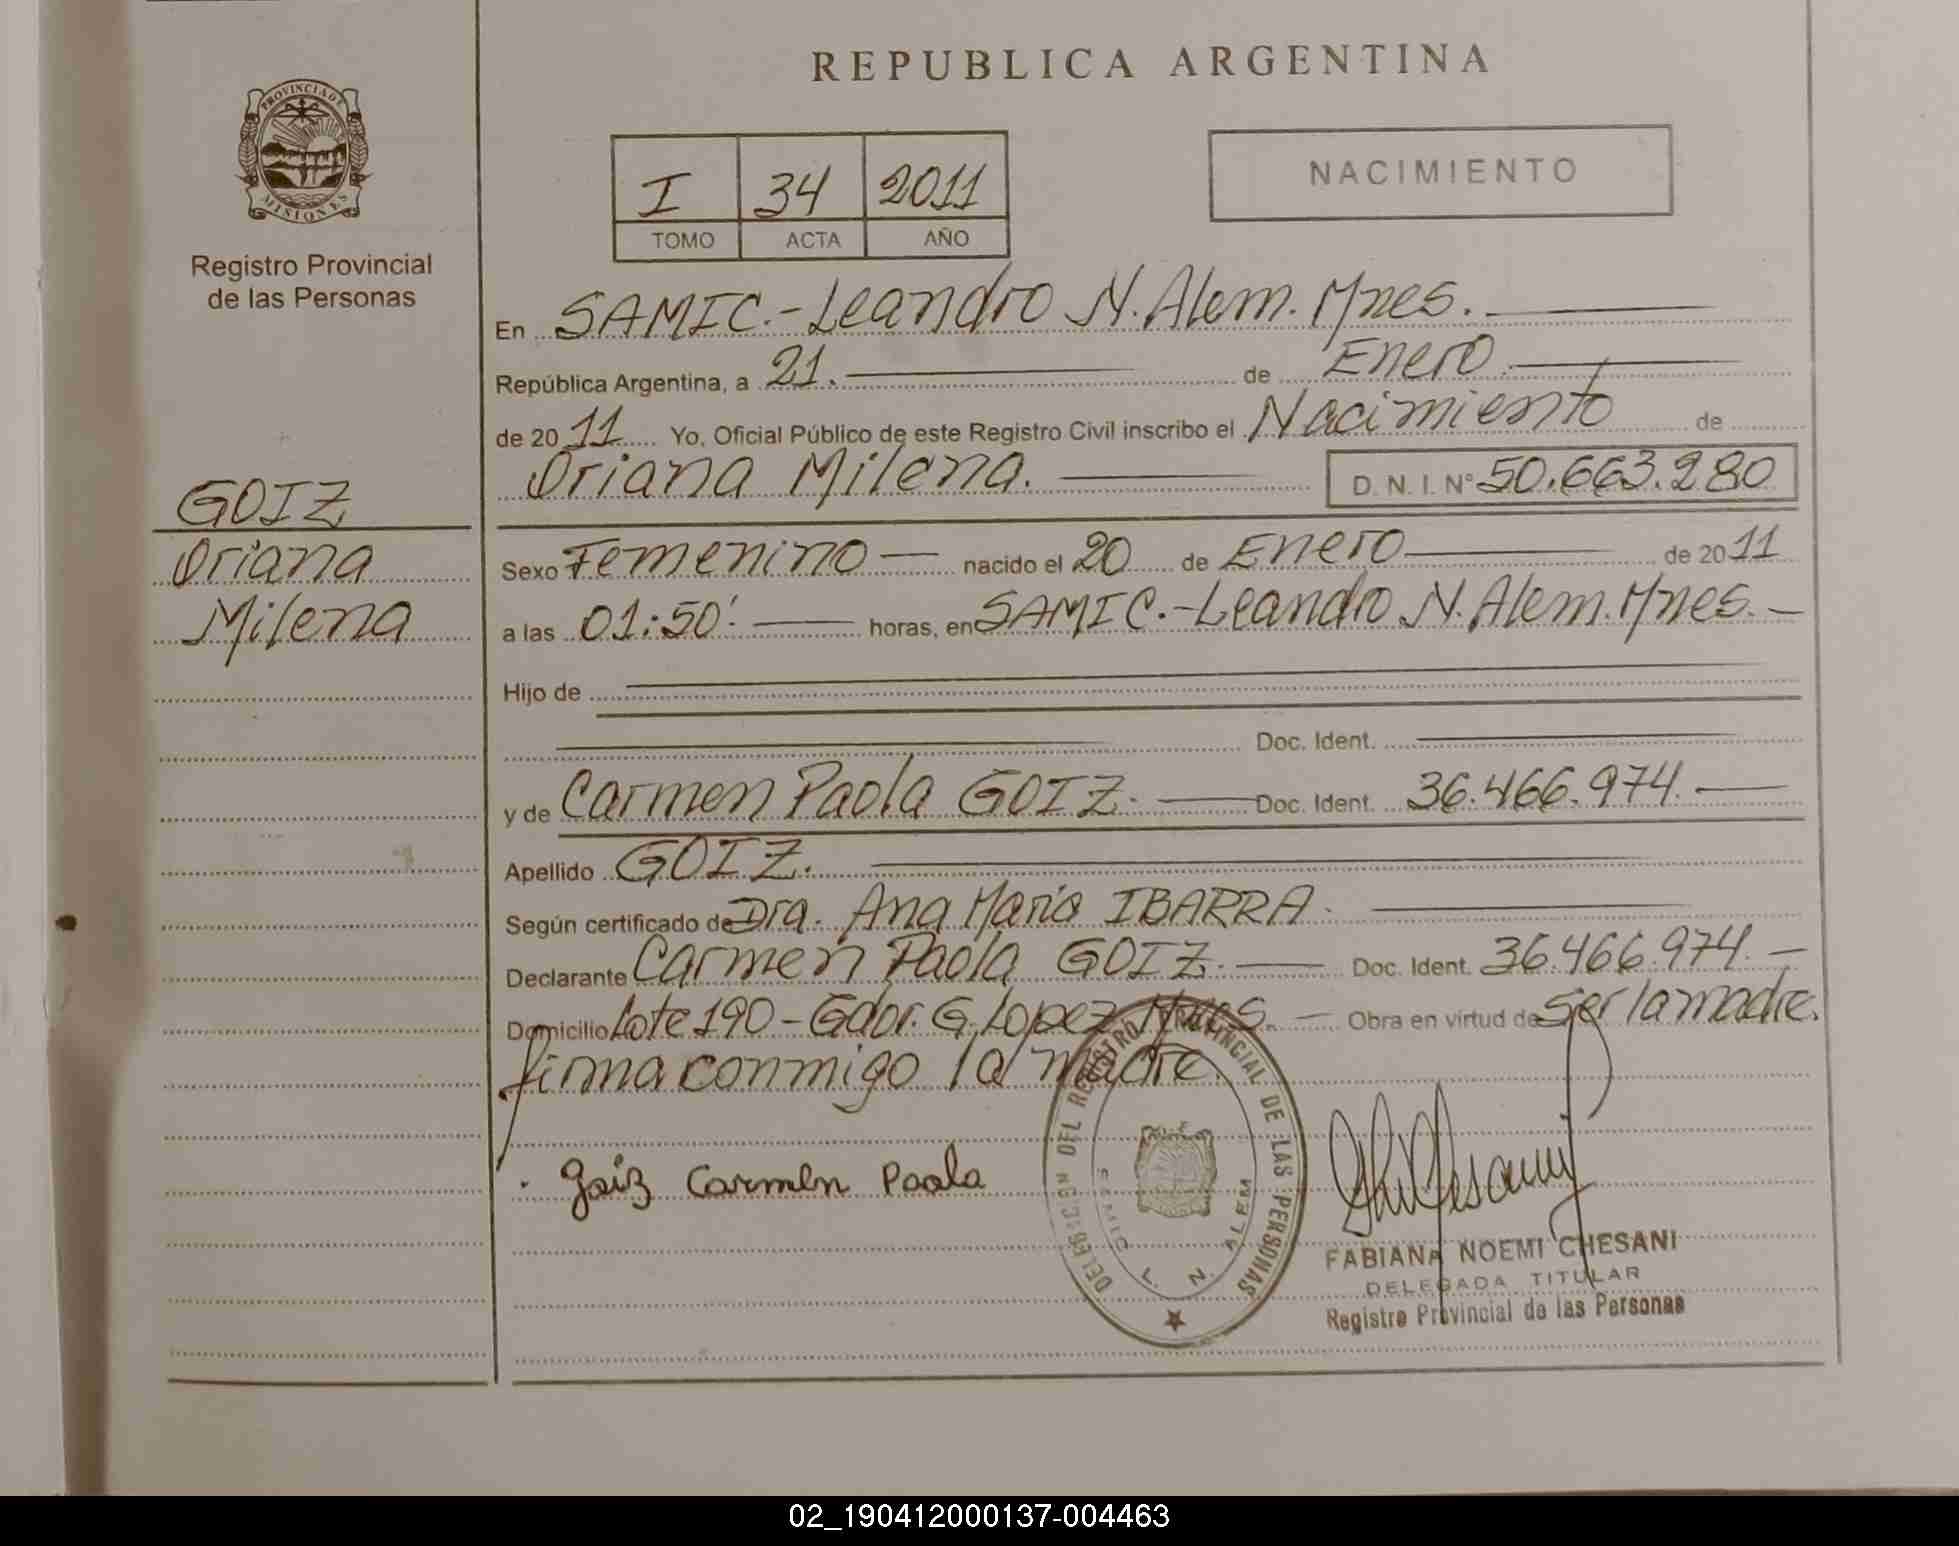 REPUBLICA ARGENTINA
PROVINCIA DE
MISIONES
Registro Provincial
de las Personas
I 34 2011
TOMO ACTA AÑO
NACIMIENTO
En SAMIC.-Leandro N. Alem. Mnes.
República Argentina, a 21. de Enero
de 2011 Yo, Oficial Público de este Registro Civil inscribo el Nacimiento de
Oriana Milena. D. N. I. N° 50.663.280
GOIZ
Oriana
Milena
Sexo Femenino nacido el 20 de Enero de 2011
a las 01:50' horas, en SAMIC.-Leandro N. Alem. Mnes.
Hijo de
Doc. Ident.
y de Carmen Paola GOIZ. Doc. Ident. 36.466.974.
Apellido GOIZ.
Según certificado de Dra. Ana María IBARRA.
Declarante Carmen Paola GOIZ. Doc. Ident. 36.466.974.
Domicilio Lote 190 - Gdor. G. Lopez Mnes. Obra en virtud de Ser la madre.
firma conmigo la madre.
Goiz Carmen Paola
DELEGACION DEL REGISTRO PROVINCIAL DE LAS PERSONAS
SAMIC L. N. ALEM
FABIANA NOEMI CHESANI
DELEGADA TITULAR
Registro Provincial de las Personas
02_190412000137-004463